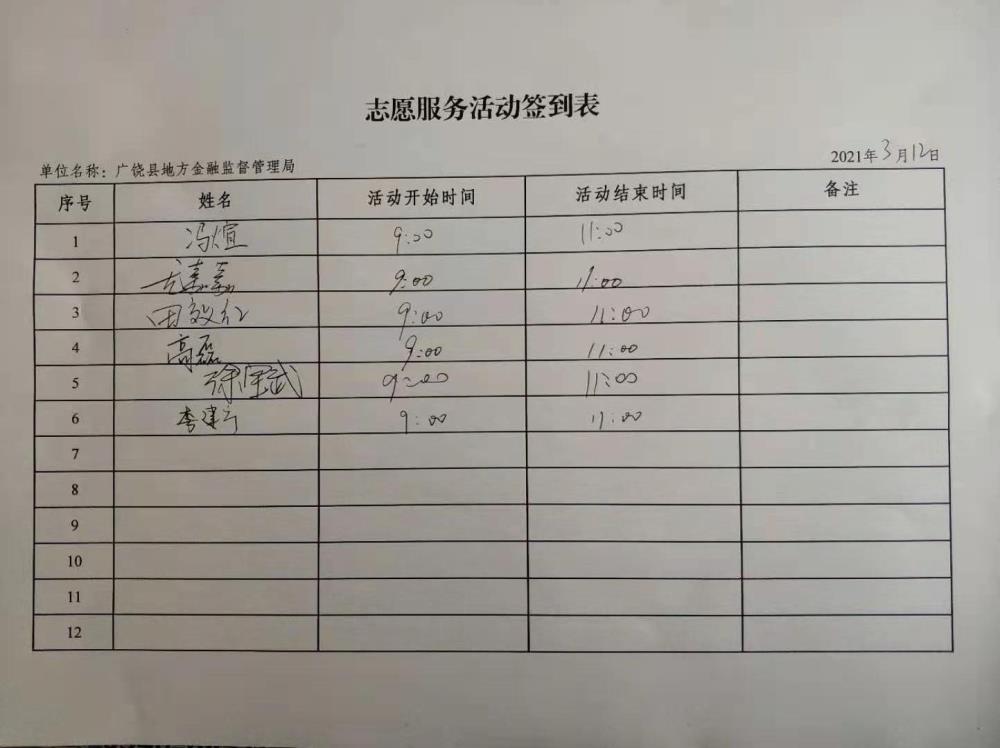 志愿服务活动签到表
单位名称：广饶县地方金融监督管理局 2021年3月12日
序号 姓名 活动开始时间 活动结束时间 备注
1 冯煊 9:00 11:00
2 9:00 11:00
3 田效红 9:00 11:00
4 高磊 9:00 11:00
5 9:00 11:00
6 李建 9:00 11:00
7
8
9
10
11
12